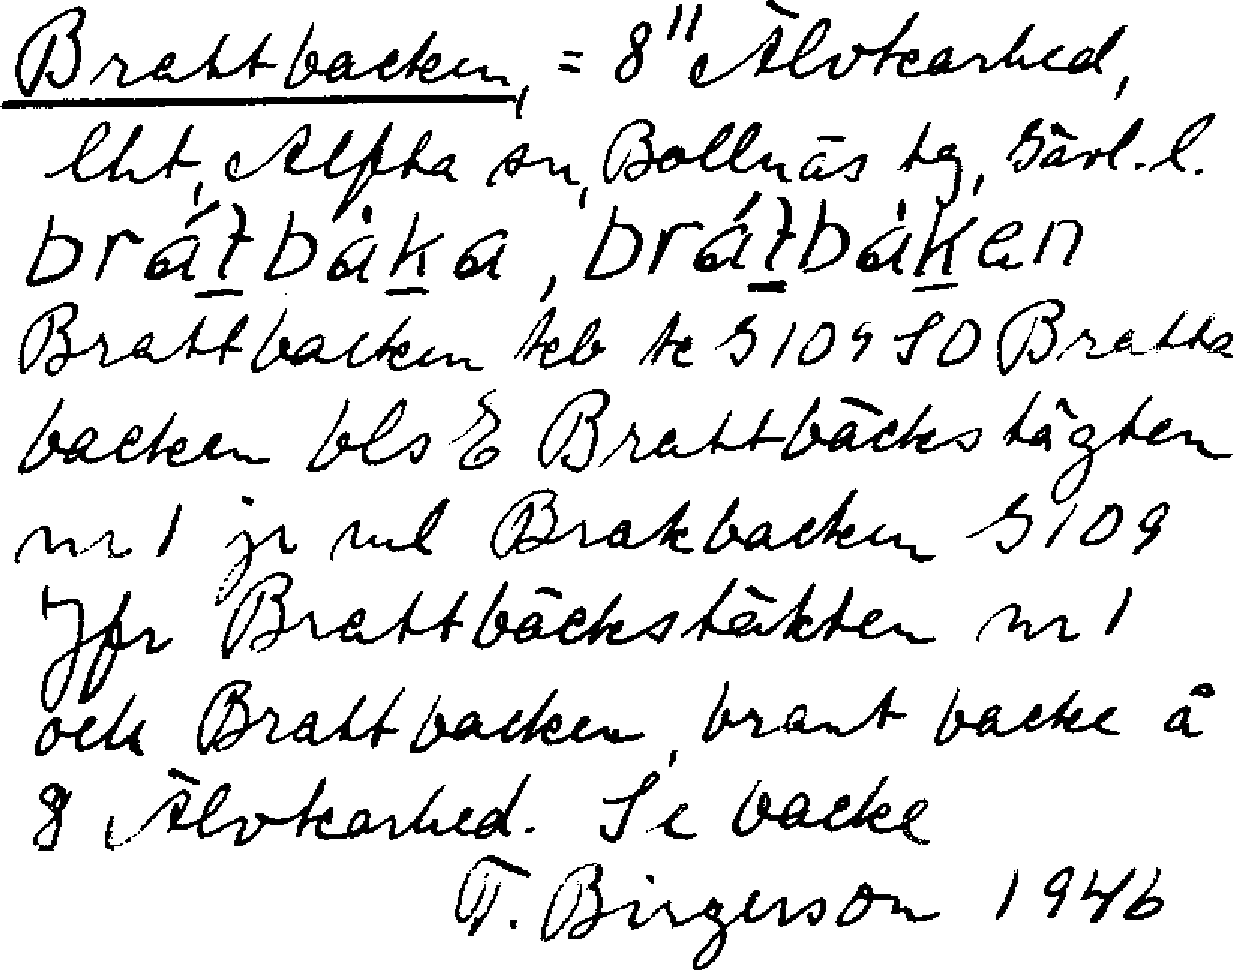 Brattbacken, = 8" Älvkarhed,
lht, Alfta sn, Bollnäs tg, Gävl. l.
brátbàka, brátbàken
Brattbacken kb k G109 SO Bratta
backen bls E Brattbäckstägten
nr 1 jr ml Brakbacken G109
Jfr Brattbäckstäkten nr 1
och Brattbacken, brant backe å
8 Älvkarhed. Se backe
T. Birgerson 1946